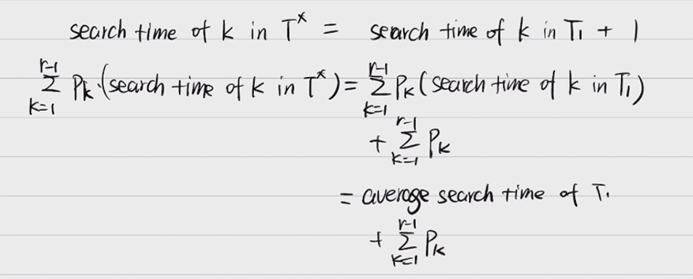 search time of k in T* = search time of k in T₁ + 1
r-1
Σ Pk·(search time of k in T*) = Σ Pk (search time of k in T₁)
k=1
+ Σ Pk
= average search time of T₁
+ Σ Pk